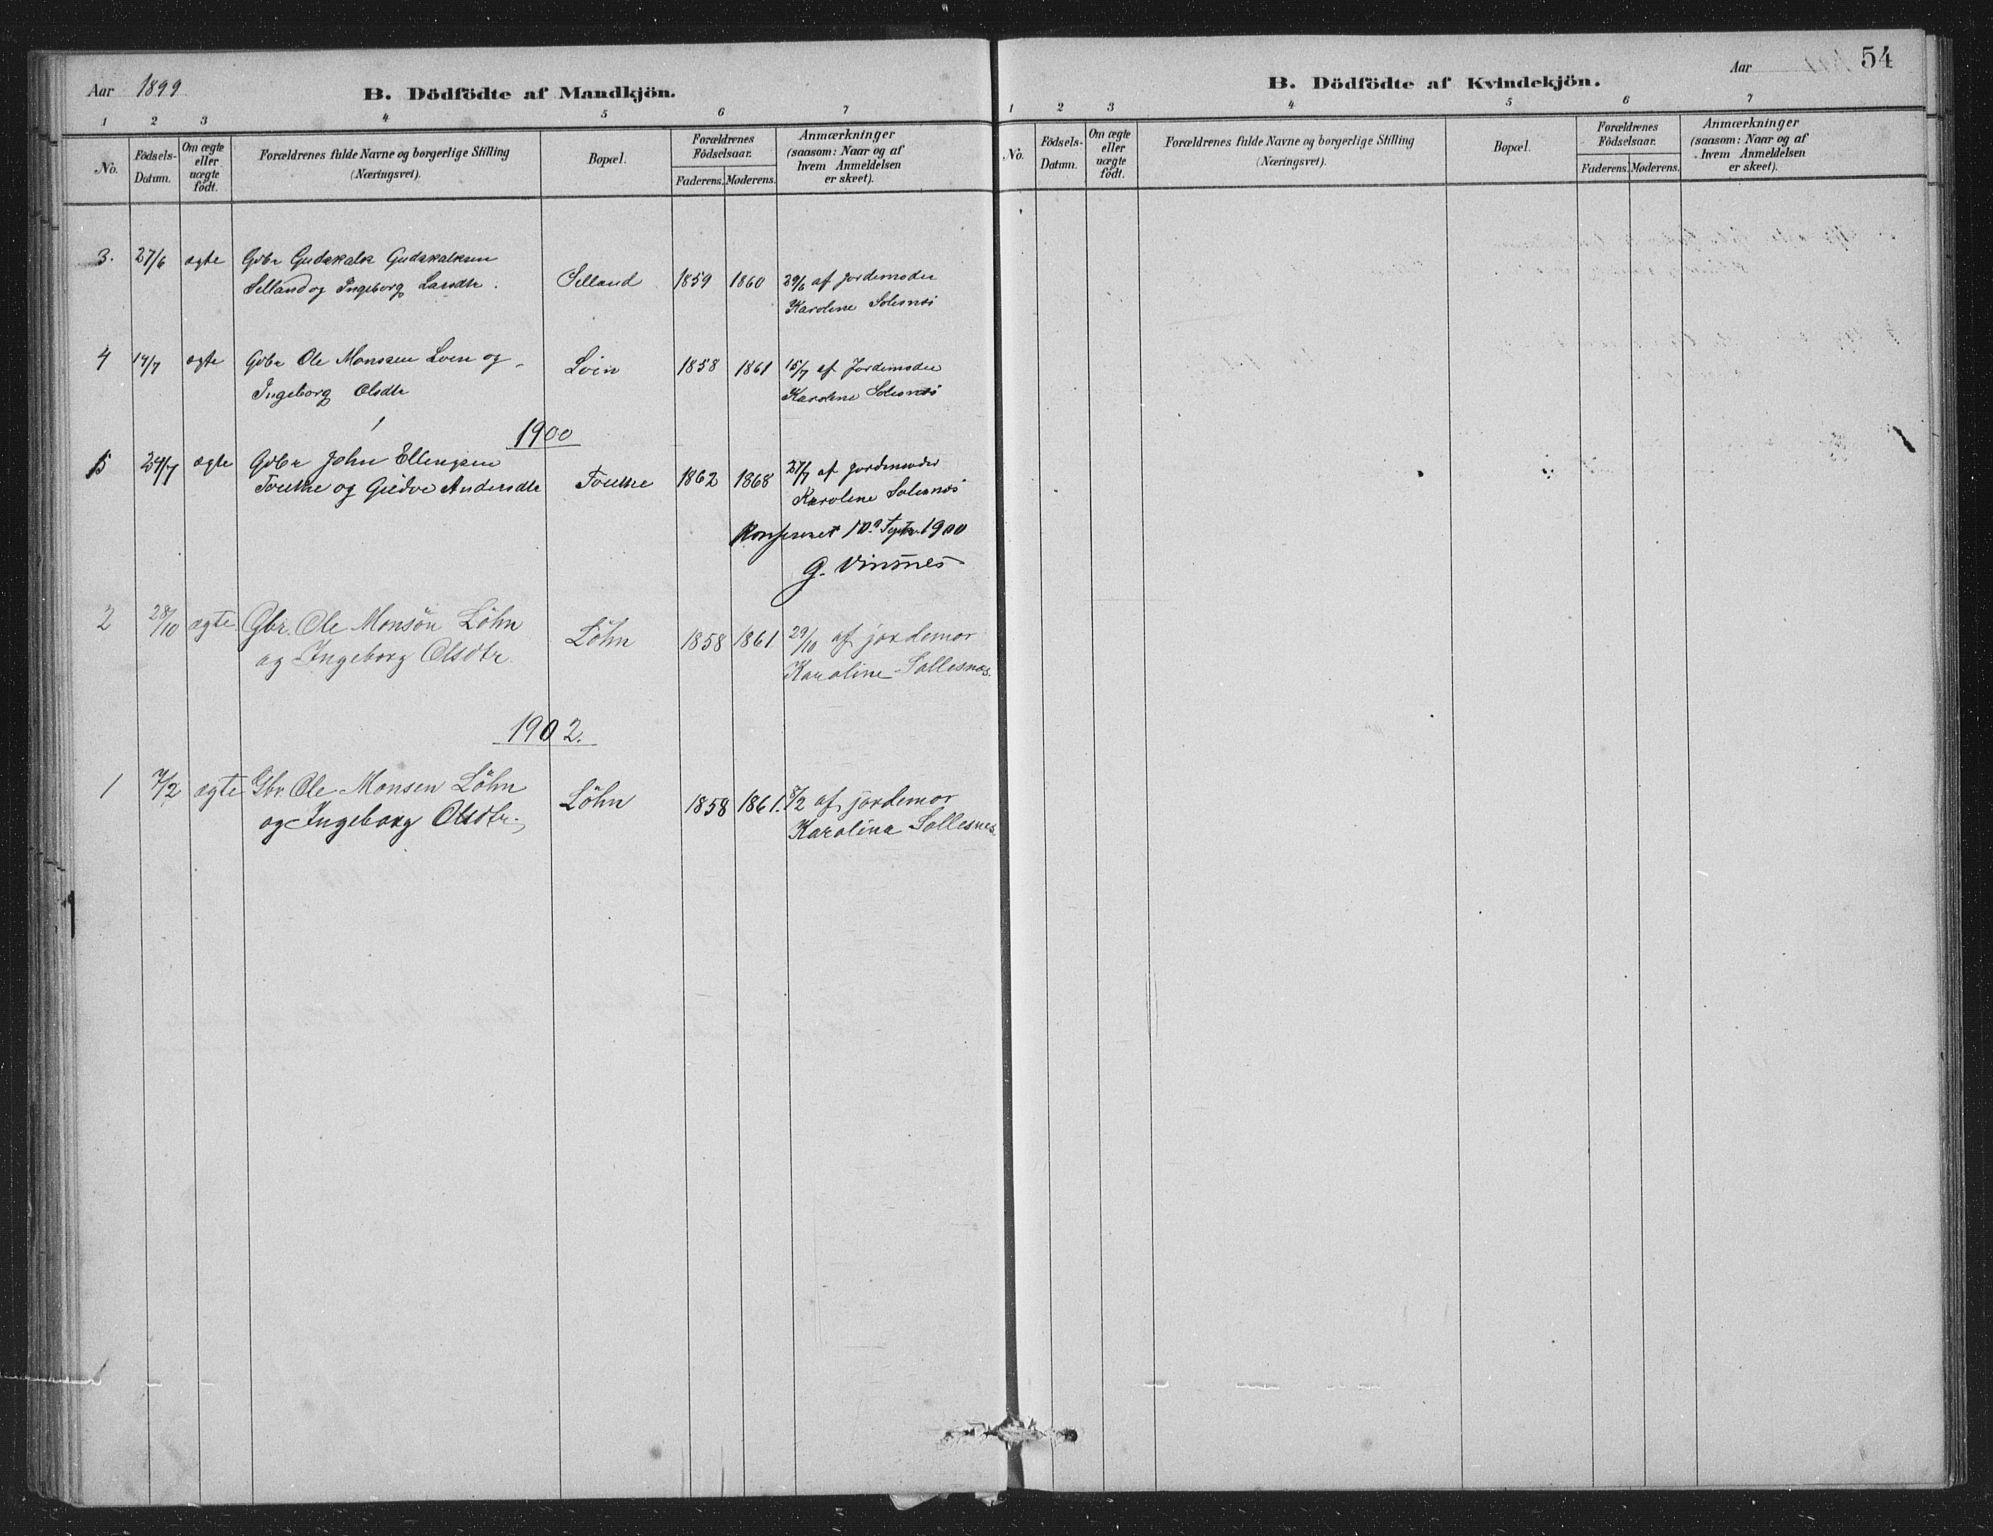 Aar 1899
B. Dödfödte af Mandkjön.
1 2 3 4 5 6 7
No.
Födsels-
Datum.
Om ægte
eller
uægte
födt.
Forældrenes fulde Navne og borgerlige Stilling
(Næringsvei).
Bopæl.
Forældrenes
Födselsaar.
Faderens. Moderens.
Anmærkninger
(saasom: Naar og af
hvem Anmeldelsen
er skeet).
3. 27/6 ægte Gdbr Gudskalk Gudskalksen
Selland og Ingeborg Larsdtr. Selland 1859 1860 29/6 af Jordemoder
Karoline Solesnes
4 14/7 ægte Gdbr Ole Monssen Loen og
Ingeborg Olsdtr Löin 1858 1861 15/7 af Jordemoder
Karoline Solesnes
1900
5 24/7 ægte Gdbr John Ellingsen
Touthe og Gudve Andersdtr Touthe 1862 1868 27/7 af Jordemoder
Karoline Solesnes
Konfereret 10. Septbr 1900
G. Vinsnes
2 28/10 ægte Gbr. Ole Monsön Löhn
og Ingeborg Olsdtr. Löhn 1858 1861 29/10 af jordemor
Karoline Sollesnæs.
1902.
1 7/2 ægte Gbr. Ole Monsen Löhn
og Ingeborg Olsdtr. Löhn 1858 1861. 8/2 af jordemor
Karolina Sollesnes
Aar 54
B. Dödfödte af Kvindekjön.
1 2 3 4 5 6 7
No.
Födsels-
Datum.
Om ægte
eller
uægte
födt.
Forældrenes fulde Navne og borgerlige Stilling
(Næringsvei).
Bopæl.
Forældrenes
Födselsaar.
Faderens. Moderens.
Anmærkninger
(saasom: Naar og af
hvem Anmeldelsen
er skeet).